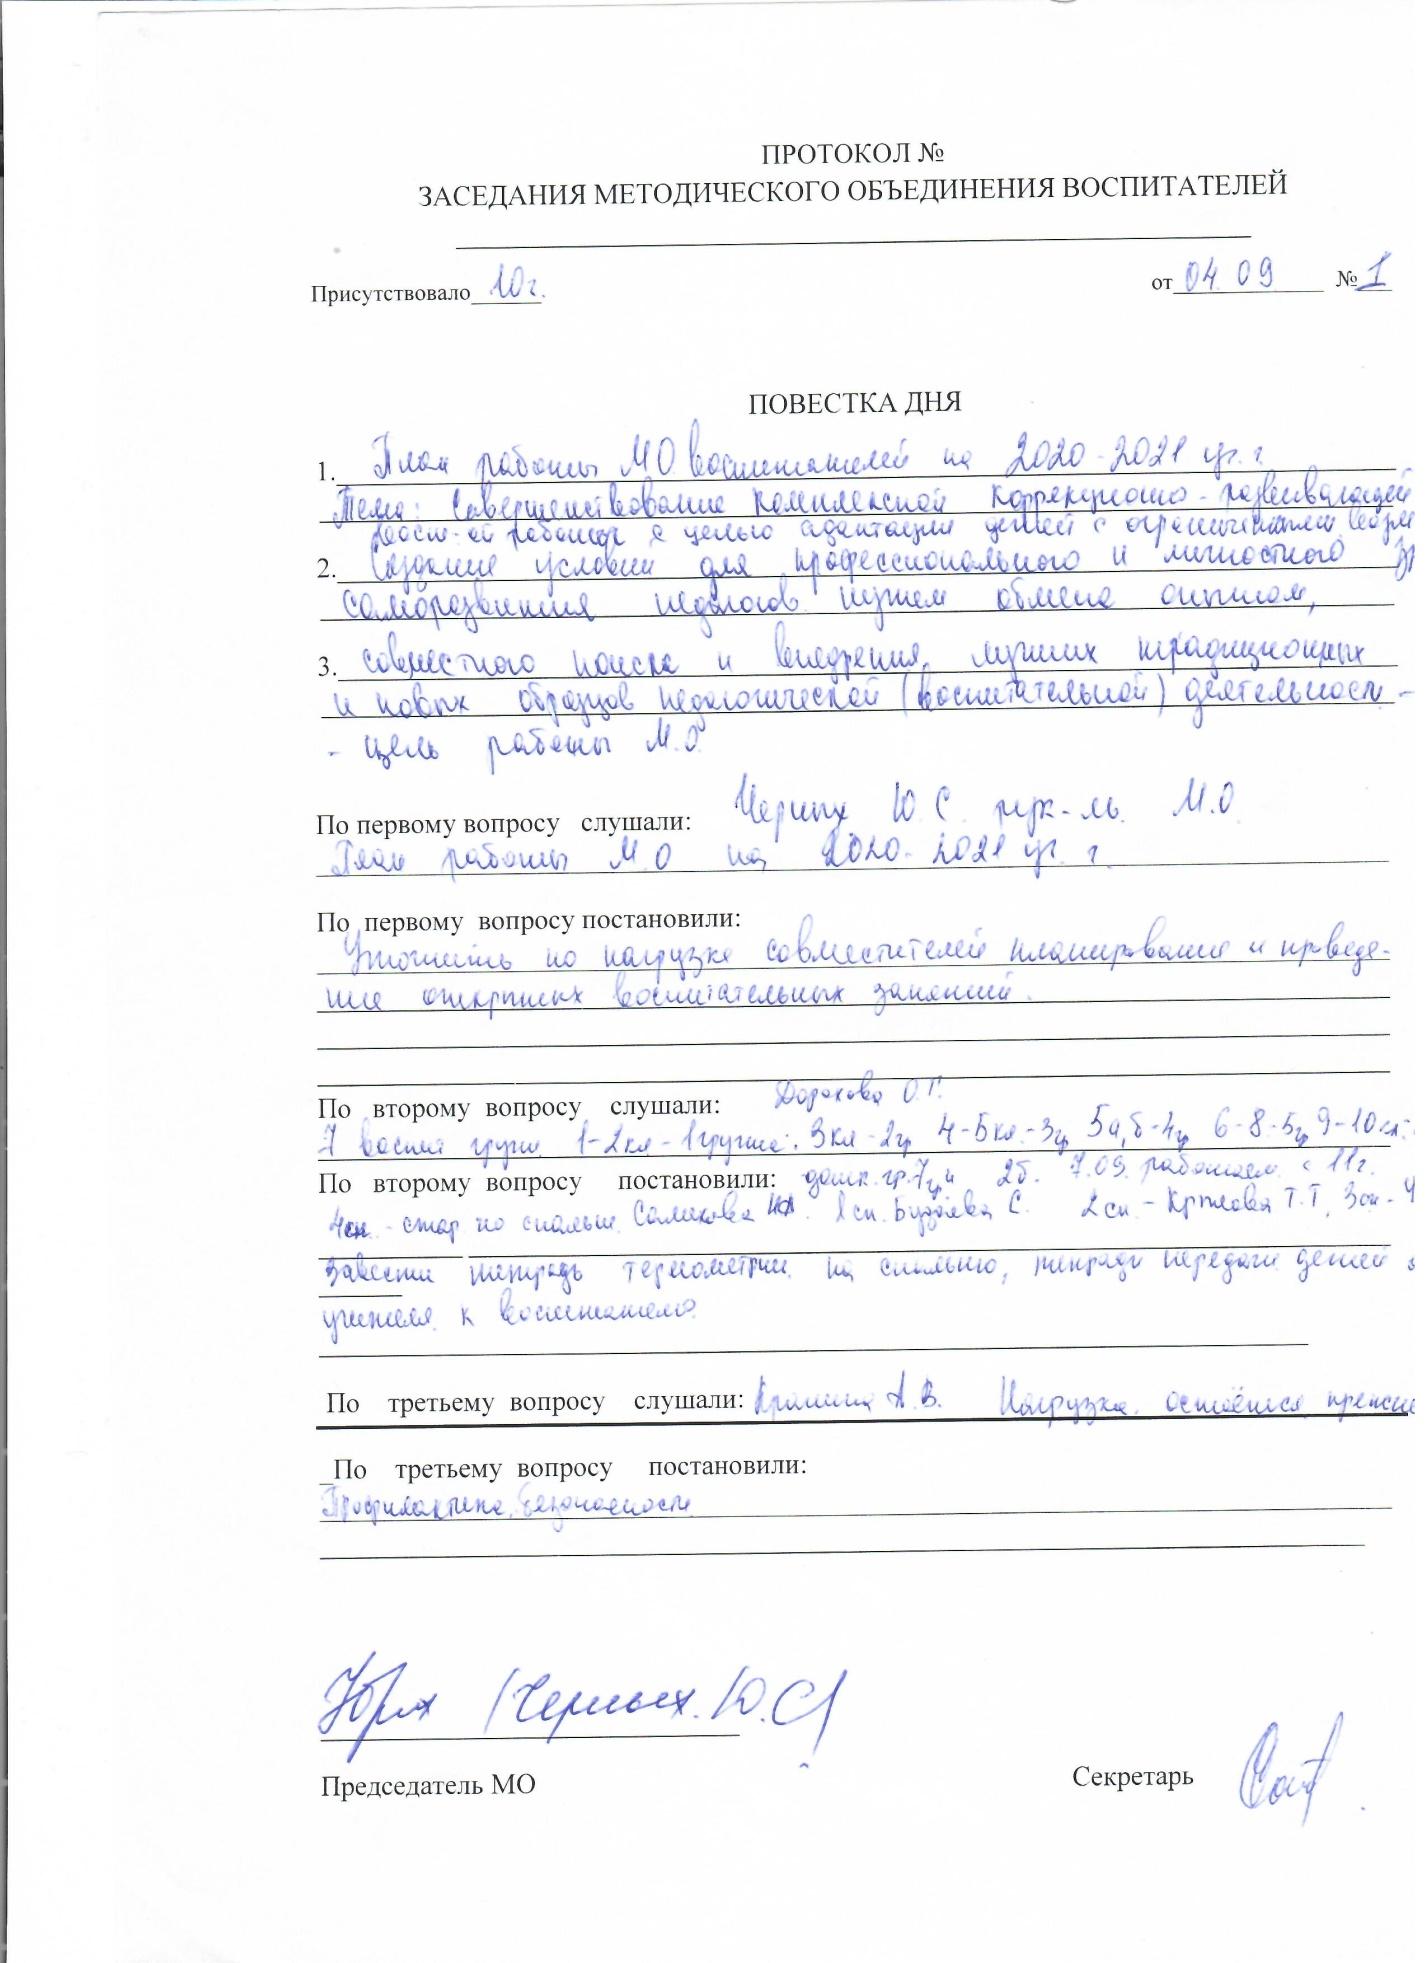 ПРОТОКОЛ №
ЗАСЕДАНИЯ МЕТОДИЧЕСКОГО ОБЪЕДИНЕНИЯ ВОСПИТАТЕЛЕЙ
Присутствовало 10 от 04 09 № 1
ПОВЕСТКА ДНЯ
1. План работы МО воспитателей на 2020-2021 уч. г.
Тема: Совершенствование комплексной коррекционно-развивающей
работы с целью адаптации детей с
2. Создание условий для профессионального и личностного
саморазвития педагогов путем обмена опытом,
3. совместного поиска и внедрения лучших традиционных
и новых образцов педагогической (воспитательной) деятельности -
- цель работы М.О.
По первому вопросу слушали: Черных Ю. С. рук-ль М.О.
План работы М.О на 2020-2021 уч. г.
По первому вопросу постановили:
Уточнить по нагрузке совместителей планирование и проведе-
ние открытых воспитательных занятий.
По второму вопросу слушали: Дорохова О.Г.
7 воспит групп 1-2кл-1группа. 3кл-2гр 4-5кл-3гр 5а,б-4гр 6-8-5гр 9-10кл
По второму вопросу постановили: 7.09. работаем с
2сп.- Т.Т, 3сп-
Завести тетрадь термометрии на спальню, тетради передачи детей
учителя к воспитателю.
По третьему вопросу слушали: А.В. Нагрузка остаётся
_По третьему вопросу постановили:
Профилактика, безопасность
(Черных Ю.С)
Председатель МО Секретарь